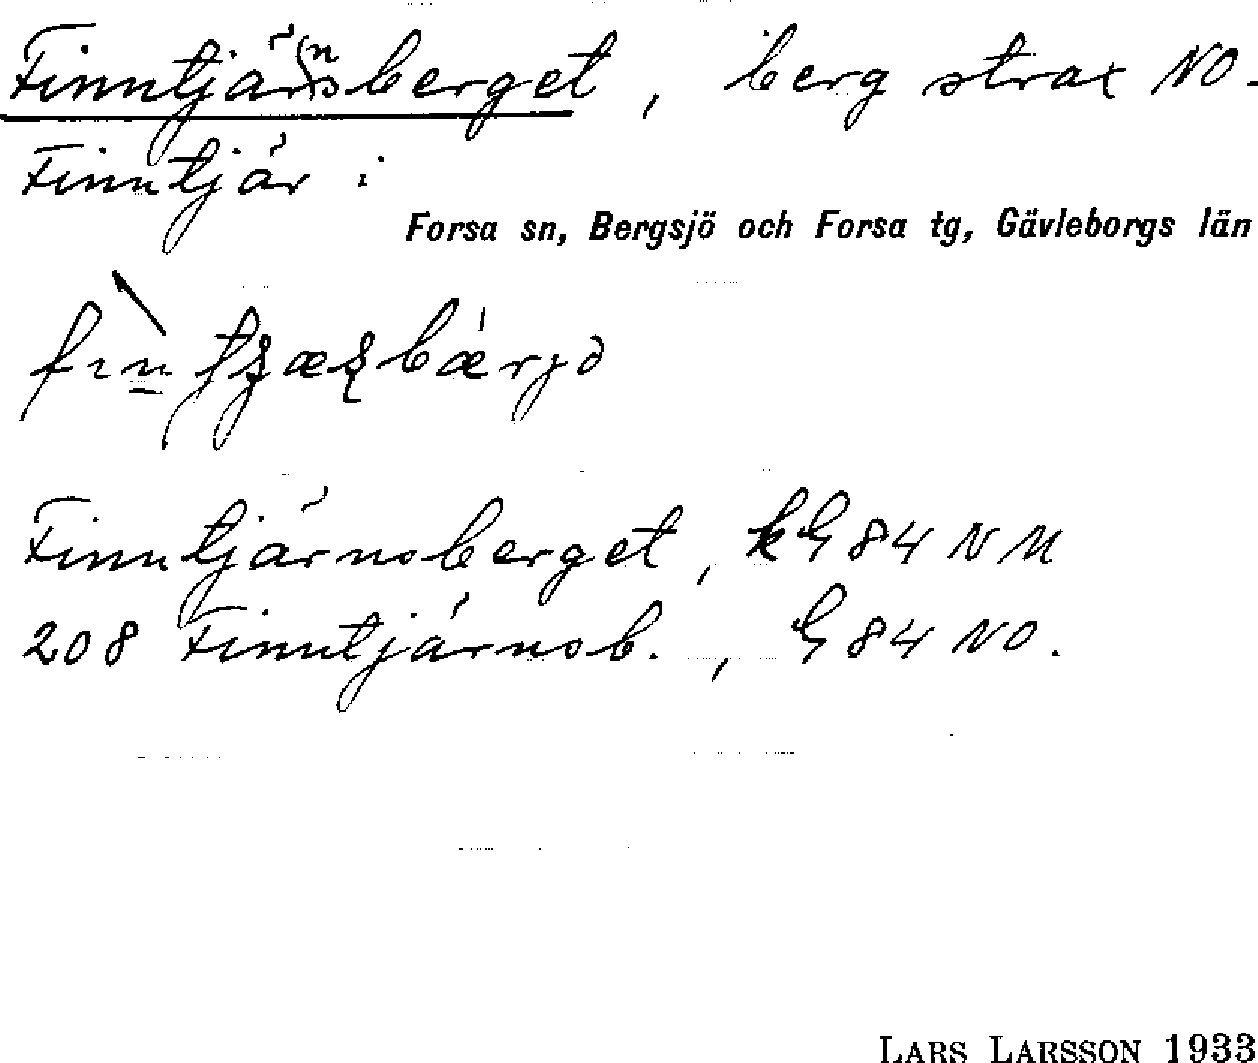 Finntjär(n)sberget, berg strax NO-
Finntjär i
Forsa sn, Bergsjö och Forsa tg, Gävleborgs län
Finntjärnsberget, kG 84 NM
208 Finntjärnsb., G 84 NO.
LARS LARSSON 1933